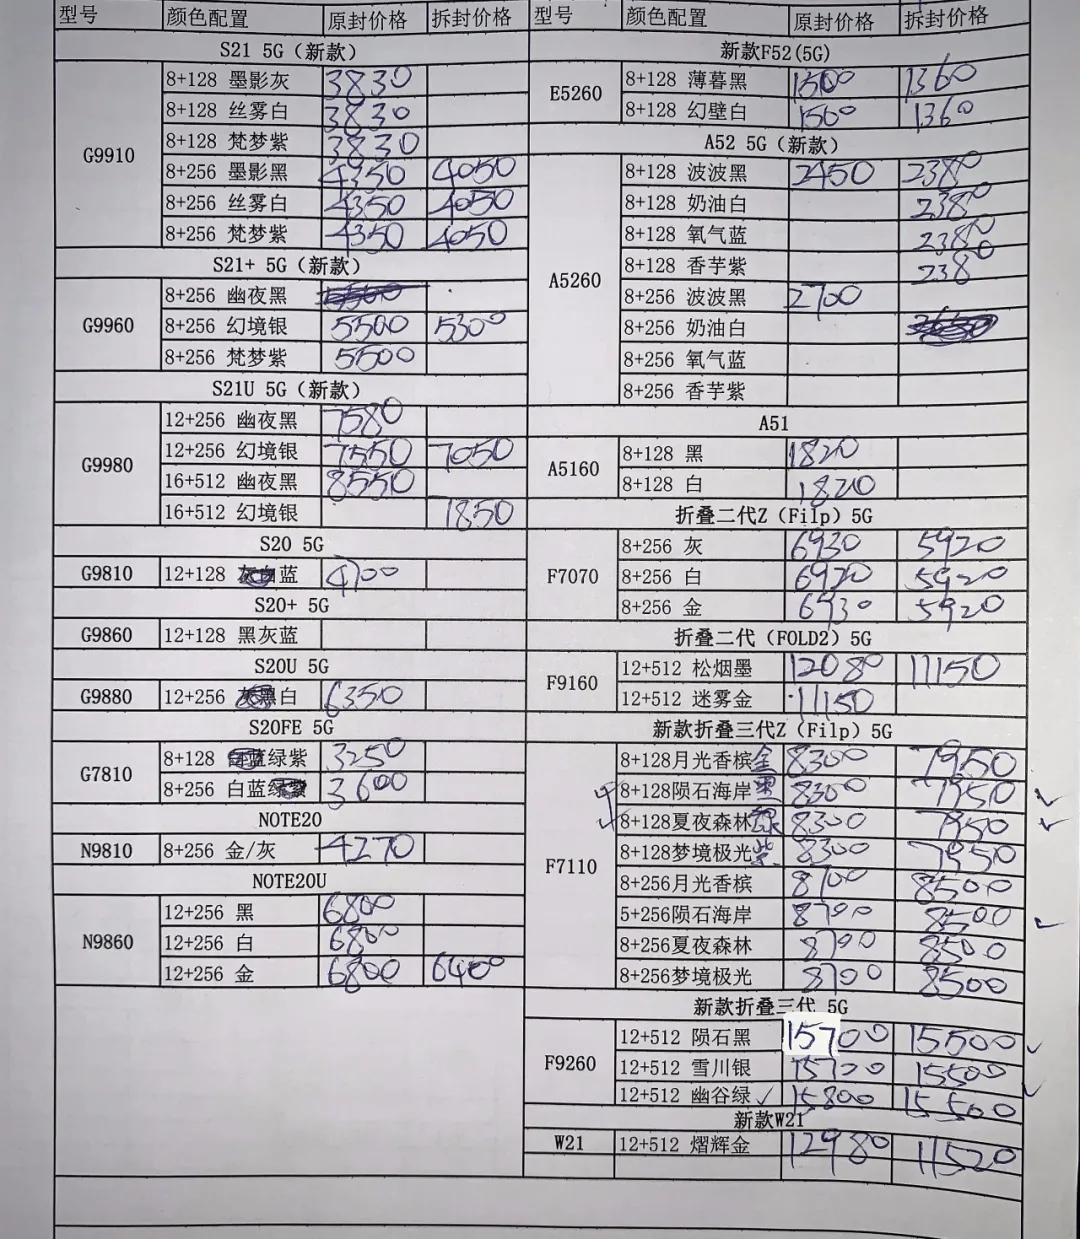 型号 颜色配置 原封价格 拆封价格
S21 5G（新款）
G9910
8+128 墨影灰 3830
8+128 丝雾白 3830
8+128 梵梦紫 3830
8+256 墨影黑 4350 4050
8+256 丝雾白 4350 4050
8+256 梵梦紫 4350 4050
S21+ 5G（新款）
G9960
8+256 幽夜黑
8+256 幻境银 5500 5300
8+256 梵梦紫 5500
S21U 5G（新款）
G9980
12+256 幽夜黑 7580
12+256 幻境银 7550 7050
16+512 幽夜黑 8550
16+512 幻境银 7850
S20 5G
G9810 12+128 蓝 4700
S20+ 5G
G9860 12+128 黑灰蓝
S20U 5G
G9880 12+256 白 6350
S20FE 5G
G7810
8+128 绿紫 3250
8+256 白蓝 3600
NOTE20
N9810 8+256 金/灰 4270
NOTE20U
N9860
12+256 黑 6800
12+256 白 6800
12+256 金 6800 6400
型号 颜色配置 原封价格 拆封价格
新款F52(5G)
E5260
8+128 薄暮黑 1500 1360
8+128 幻壁白 1500 1360
A52 5G（新款）
A5260
8+128 波波黑 2450 2380
8+128 奶油白 2380
8+128 氧气蓝 2380
8+128 香芋紫 2380
8+256 波波黑 2700
8+256 奶油白
8+256 氧气蓝
8+256 香芋紫
A51
A5160
8+128 黑 1820
8+128 白 1820
折叠二代Z（Filp）5G
F7070
8+256 灰 6930 5920
8+256 白 6920 5920
8+256 金 6930 5920
折叠二代（FOLD2）5G
F9160
12+512 松烟墨 12080 11150
12+512 迷雾金 11150
新款折叠三代Z（Filp）5G
F7110
8+128月光香槟金 8300 7950
8+128陨石海岸黑 8300 7950
8+128夏夜森林绿 8300 7950
8+128梦境极光紫 8300 7950
8+256月光香槟 8700 8500
5+256陨石海岸 8700 8500
8+256夏夜森林 8700 8500
8+256梦境极光 8700 8500
新款折叠三代 5G
F9260
12+512 陨石黑 15700 15500
12+512 雪川银 15700 15500
12+512 幽谷绿 15800 15500
新款W21
W21 12+512 熠辉金 12980 11520